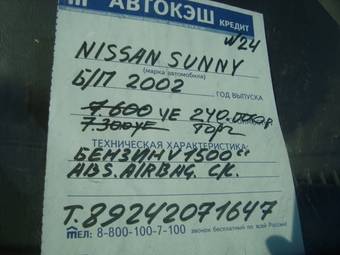 АВТОКЭШ
КРЕДИТ
№24
NISSAN SUNNY
(марка автомобиля)
Б/П 2002 ГОД ВЫПУСКА
7.600 УЕ 240.000р
7.300 УЕ ТОРГ
ТЕХНИЧЕСКАЯ ХАРАКТЕРИСТИКА:
БЕНЗИН V1500
ABS. AIRBAG. СК.
Т. 89242071647
ТЕЛ: 8-800-100-7-100 звонок бесплатный по всей России!